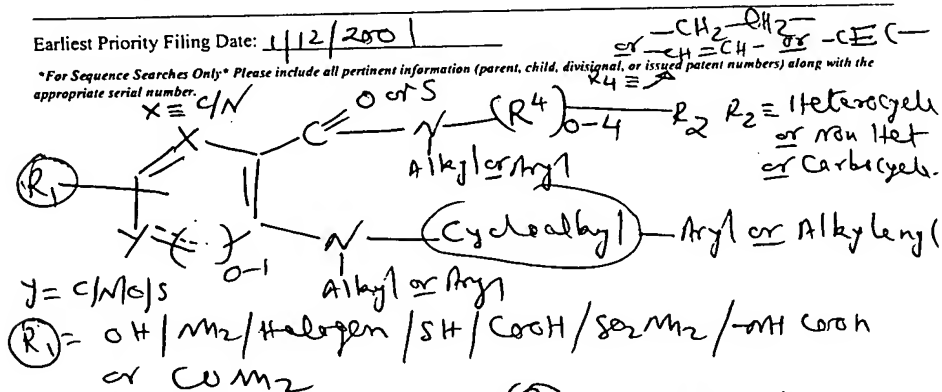 -CH2-CH2-
or -CH=CH- or -C≡C-
Earliest Priority Filing Date: 1/12/2001
*For Sequence Searches Only* Please include all pertinent information (parent, child, divisional, or issued patent numbers) along with the
appropriate serial number.
R4 ≡
X ≡ C/N
O or S
X C N (R4)0-4 R2 R2 ≡ Heterocycle
or non Het
or Carbocycle.
Alkyl or Aryl
R1
Y ( )0-1 N Cycloalkyl Aryl or Alkylenyl
Alkyl or Aryl
Y = C/N/O/S
R1 = OH/NH2/Halogen/SH/COOH/SO2NH2/-NH COOH
or CONH2